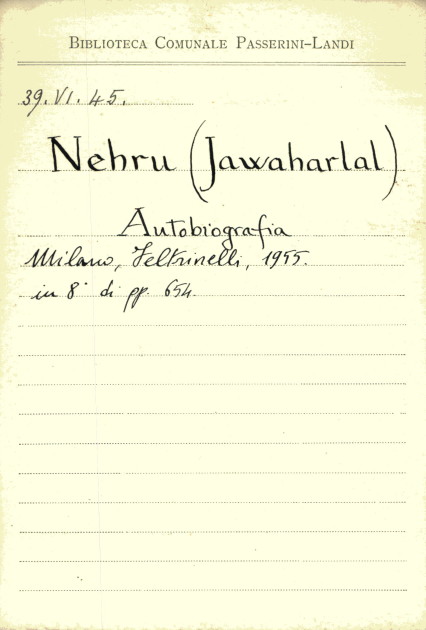 BIBLIOTECA COMUNALE PASSERINI-LANDI
39. VI. 45.
Nehru (Jawaharlal)
Autobiografia
Milano, Feltrinelli, 1955.
in 8° di pp. 654.